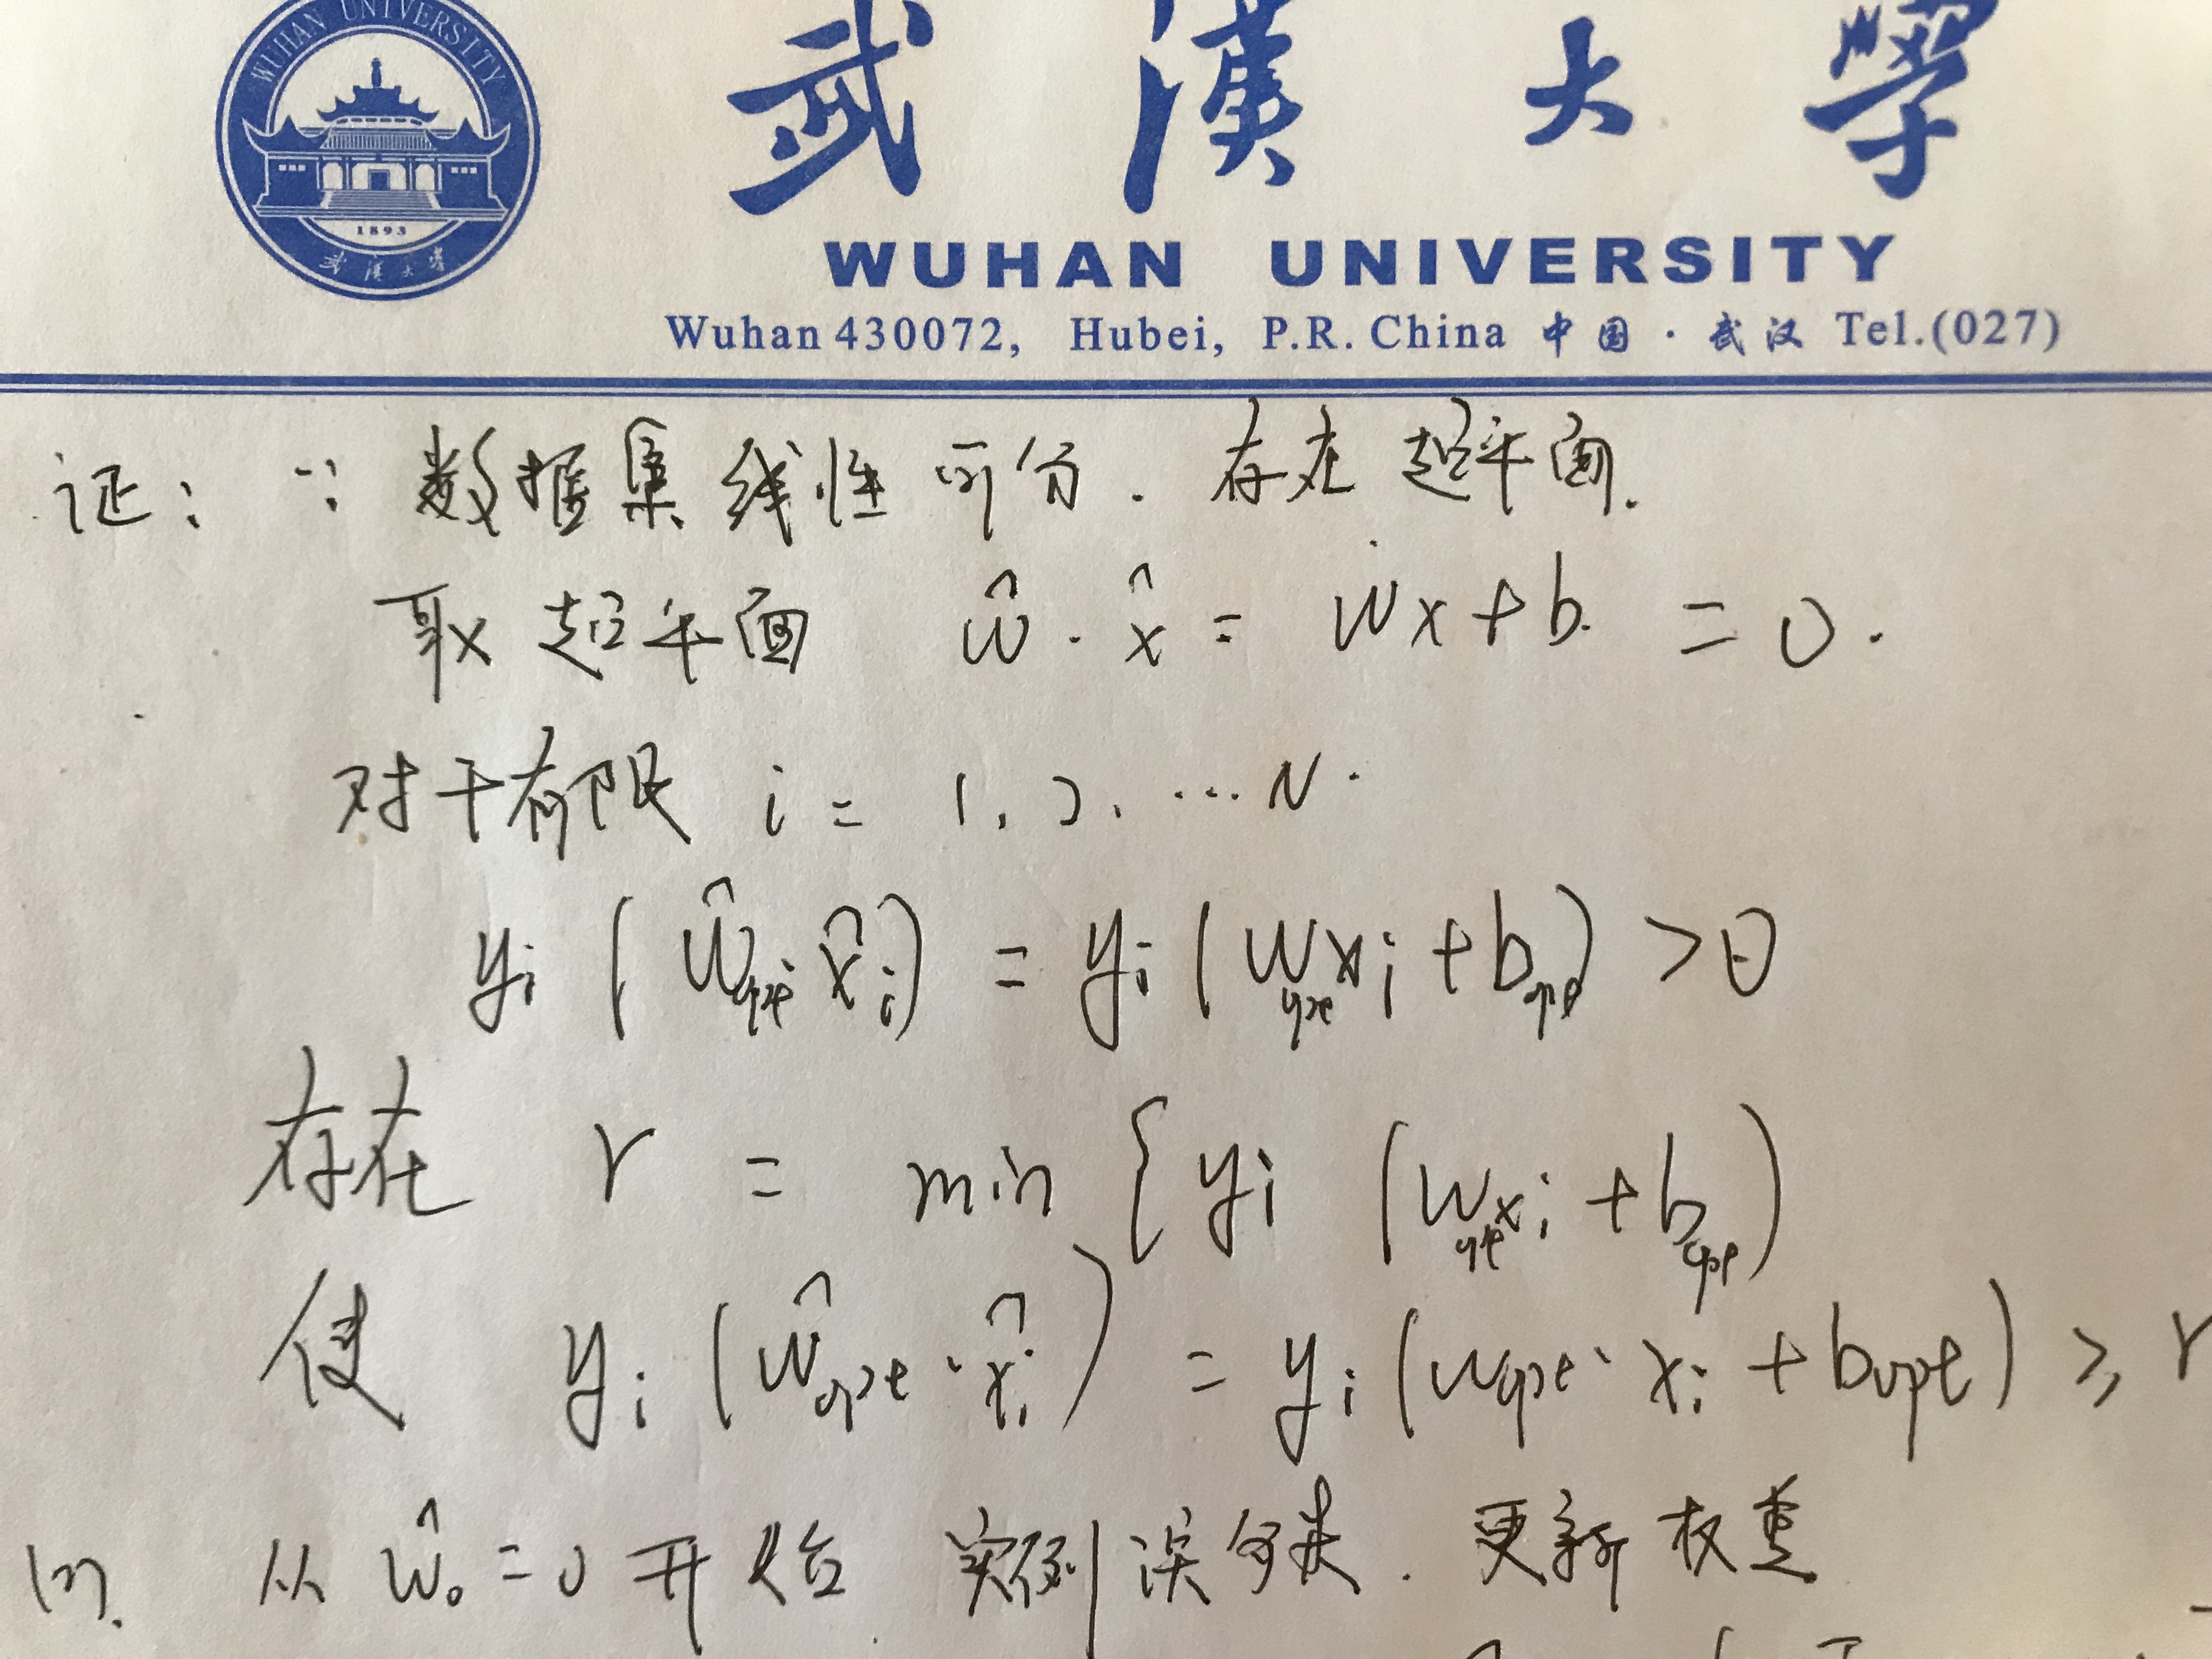 WUHAN UNIVERSITY
1893
武漢大學
武漢大學
WUHAN UNIVERSITY
Wuhan 430072, Hubei, P.R. China 中国·武汉 Tel.(027)
证: ∵ 数据集线性可分. 存在超平面.
取超平面 ŵ·x̂ = wx+b = 0.
对于有限 i = 1, 2, …N.
yi (ŵopt x̂i) = yi (wopt xi + bopt) > 0
存在 r = min { yi (wopt xi + bopt)
使 yi (ŵopt·x̂i) = yi (wopt·xi + bopt) ≥ r
(2). 从 ŵ0 = 0 开始 实例误分类. 更新权重